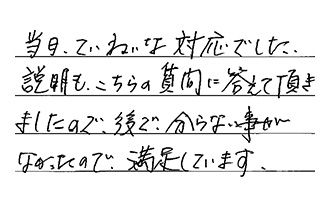 当日、ていねいな対応でした、
説明も、こちらの質問に答えて頂き
ましたので、後で、分らない事が
なかったので、満足しています、